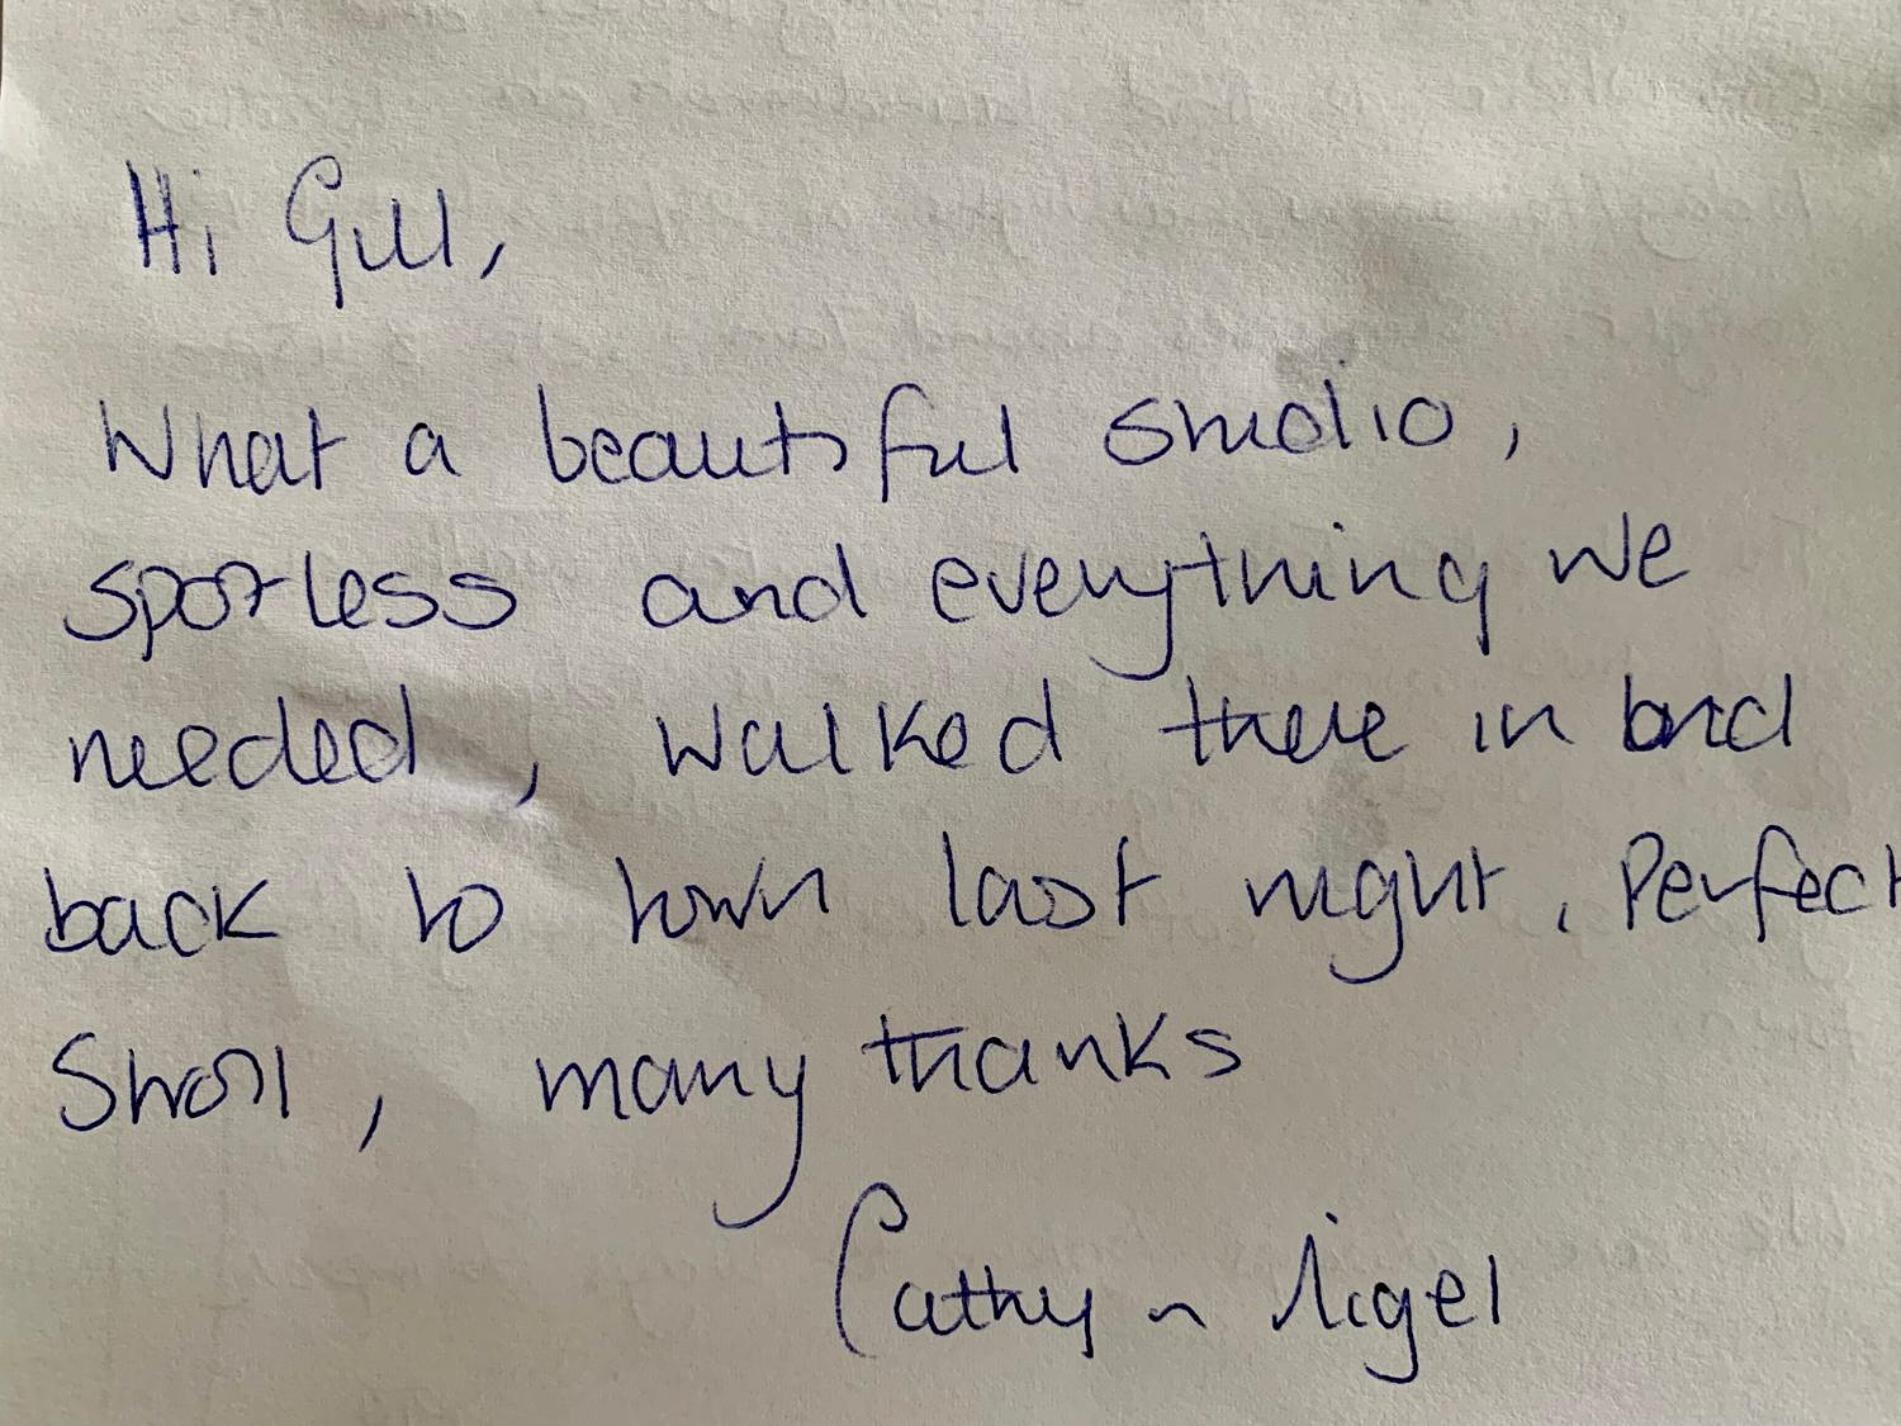 Hi Gill,
What a beautiful studio,
spotless and everything we
needed, walked there in and
back to town last night. Perfect
Stroll, many thanks
Cathy n Nigel